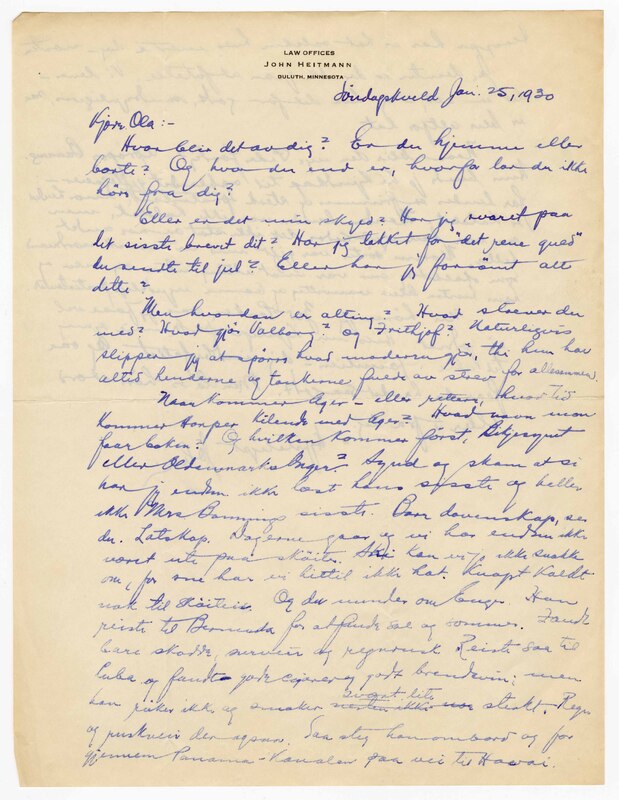 LAW OFFICES
JOHN HEITMANN
DULUTH, MINNESOTA
Söndagskveld Jan. 25, 1930
Kjære Ola:-
Hvor blir det av dig? Er du hjemme eller
borte? Og hvor du end er, hvorfor lar du ikke
höre fra dig?
Eller er det min skyld? Har jeg svaret paa
det sisste brevet dit? Har jeg takket for "det rene guld"
du sendte til jul? Eller har jeg forsömt alt
dette?
Men hvordan er alting? Hvad strever du
med? Hvad gjör Valborg? Og Frithjof? Naturligvis
slipper jeg at spörre hvad moderen gjör, thi hun har
altid henderne og tankerne fulde av strev for allesammen.
Naar kommer Ager - eller rettere, hvor tid
kommer Kilende med Ager? Hvad navn mon
faar boken? Og hvilken kommer först,
eller Synd og skam at si
har jeg endnu ikke læst hans sisste og heller
ikke Mrs sisste. Bare dovenskap, ser
du. Latskap. Dagerne gaar og vi har endnu ikke
været ute paa sköiter. Ski kan vi jo ikke snakke
om, for sne har vi hittil ikke hat. Knapt koldt
nok til sköiteis. Og det minder om Han
reiste til Bermuda for at finde sol og sommer. Fandt
bare skodde, surveir og regnrusk. Reiste saa til
Cuba og fandt gode cigarer og godt brendevin; men
han röker ikke og smaker svært lite sterkt. Regn
og ruskveir der ogsaa. Saa steg han ombord og for
gjennem Panama-Kanalen paa vei til Hawai.